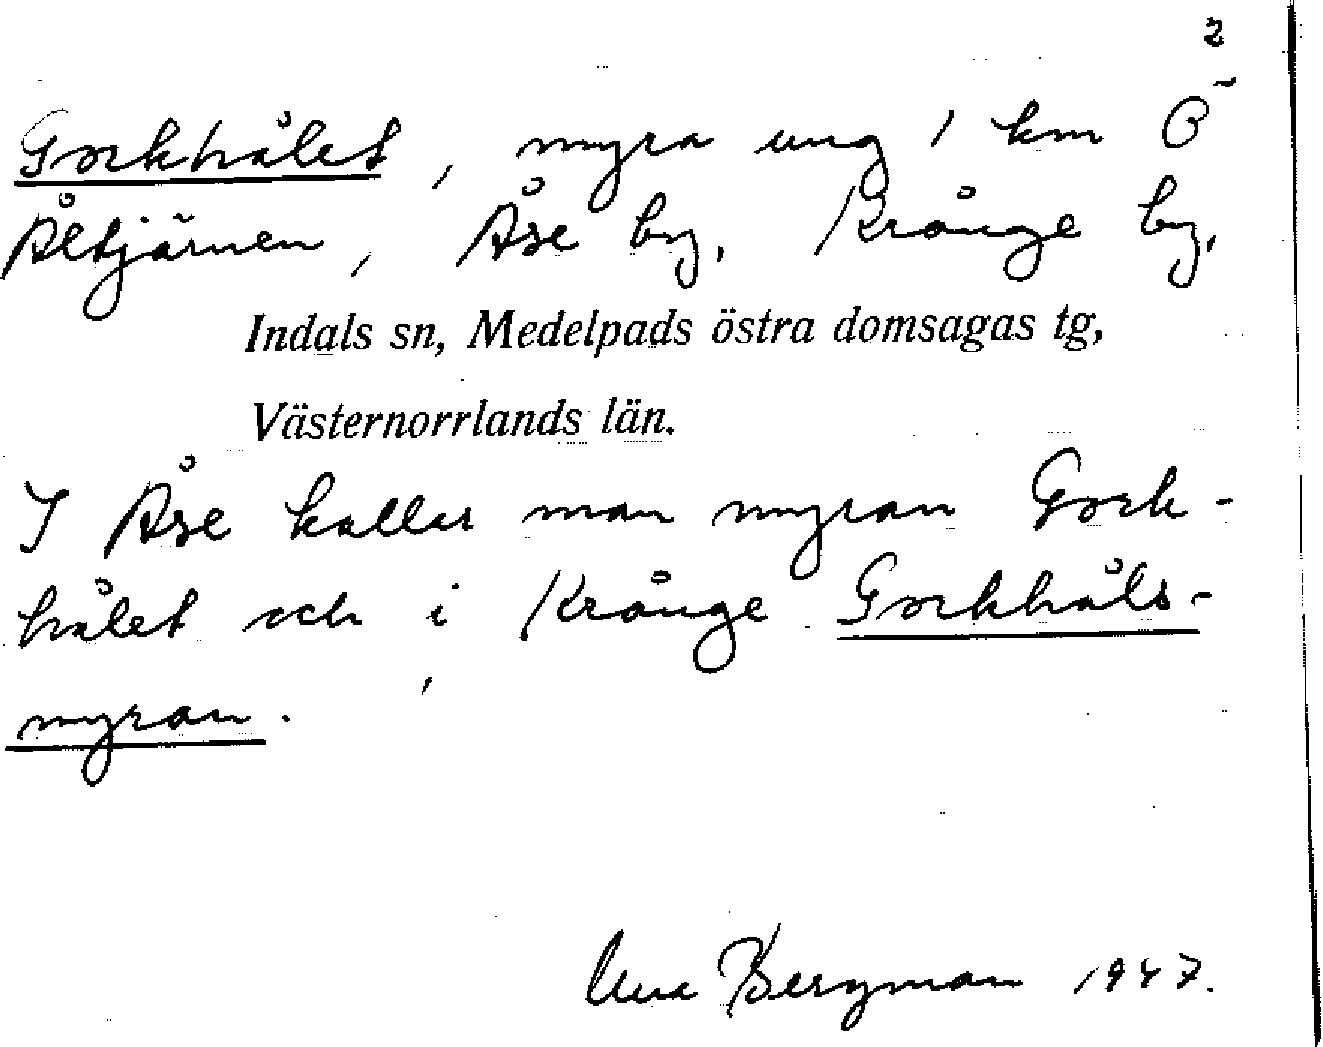 2
Gorkhålet, myra ung 1 km Ö
Åltjärnen, Åse by, Krånge by,
Indals sn, Medelpads östra domsagas tg,
Västernorrlands län.
I Åse kallar man myran Gork-
hålet och i Krånge Gorkhåls-
myran.
Bergman 1947.